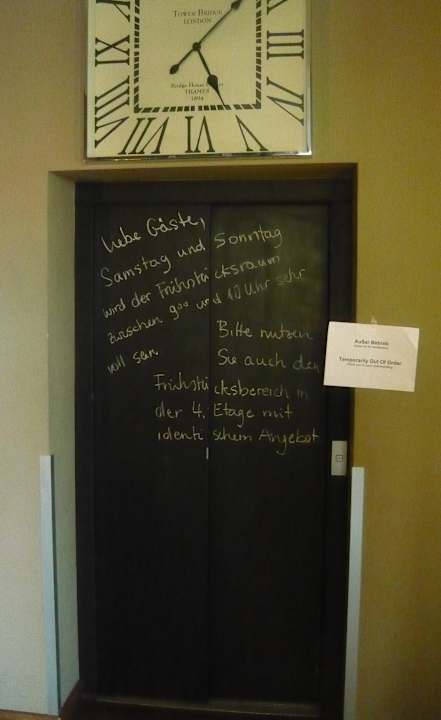 TOWER BRIDGE
LONDON
Bridge House
THAMES
1894
III
IIII
V
VI
VII
VIII
IX
Liebe Gäste,
Samstag und Sonntag
wird der Frühstücksraum
zwischen 9°° und 10 Uhr sehr
voll sein.
Bitte nutzen
Sie auch den
Frühstücksbereich in
der 4. Etage mit
identischem Angebot
Außer Betrieb
Temporarily Out Of Order